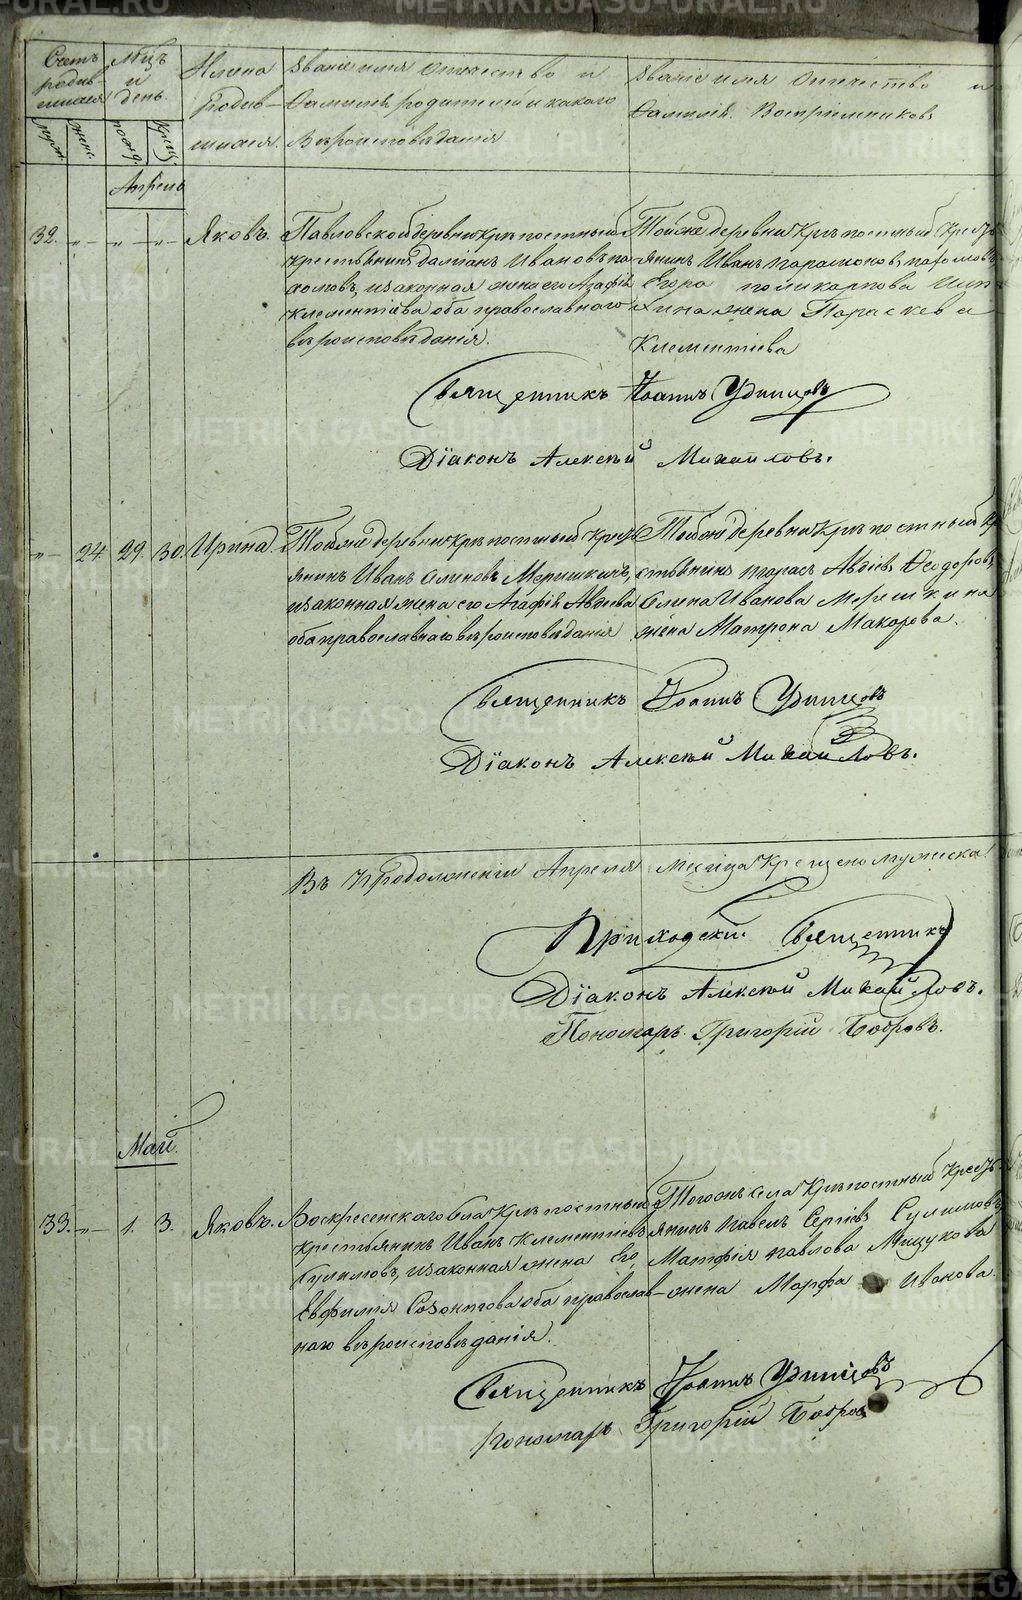 Счетъ родив-шихся
муж.
жен.
Мѣцъ и день.
рожд.
крещ.
Имена родив-шихся.
Званіе имя отчество и
Фамилія родителей и какого
Вѣроисповѣданія
Званіе имя отчество и
Фамилія Воспріемниковъ
Апрель
32. Яковъ.
Павловской деревни крѣпостный
крестьянинъ Даміанъ Ивановъ
изаконная жена его Агафія
Клементіева оба православнаго
вѣроисповѣданія.
Тойже деревни крѣпостный крест
янинъ Иванъ Парамоновъ
Егора
жена Параскева
Климентіева
Священникъ Іоаннъ Удинцовъ
Діаконъ Алексѣй Михайловъ.
24. 29. 30. Ирина.
Тойже деревни крѣпостный крест
янинъ Иванъ Олиновъ Мерешкинъ,
изаконная жена его Агафія Авдеева
оба православнаго вѣроисповѣданія
Тойже деревни крѣпостный кр
стьянинъ Тарасъ Авдіевъ Феодоровъ,
Олина Иванова Мерешкина
жена Матрона Макарова.
Священникъ Іоаннъ Удинцовъ
Діаконъ Алексѣй Михайловъ.
Въ продолженіи Апреля месяца крещено мужеска
Приходскій Священникъ
Діаконъ Алексѣй Михайловъ.
Пономарь Григорій Бобровъ.
Май.
33. 1. 3. Яковъ.
Воскресенскаго села крѣпостный
крестьянинъ Иванъ Клементіевъ
Сулимовъ, изаконная жена его
Евфимія Созонтова оба православ-
наго вѣроисповѣданія.
Тогоже села крѣпостный крест
янинъ Павелъ Сергіевъ Сулимовъ
Матфія Павлова Мицукова
жена Марфа Иванова.
Священникъ Іоаннъ Удинцовъ
Пономарь Григорій Бобровъ
METRIKI.GASO-URAL.RU